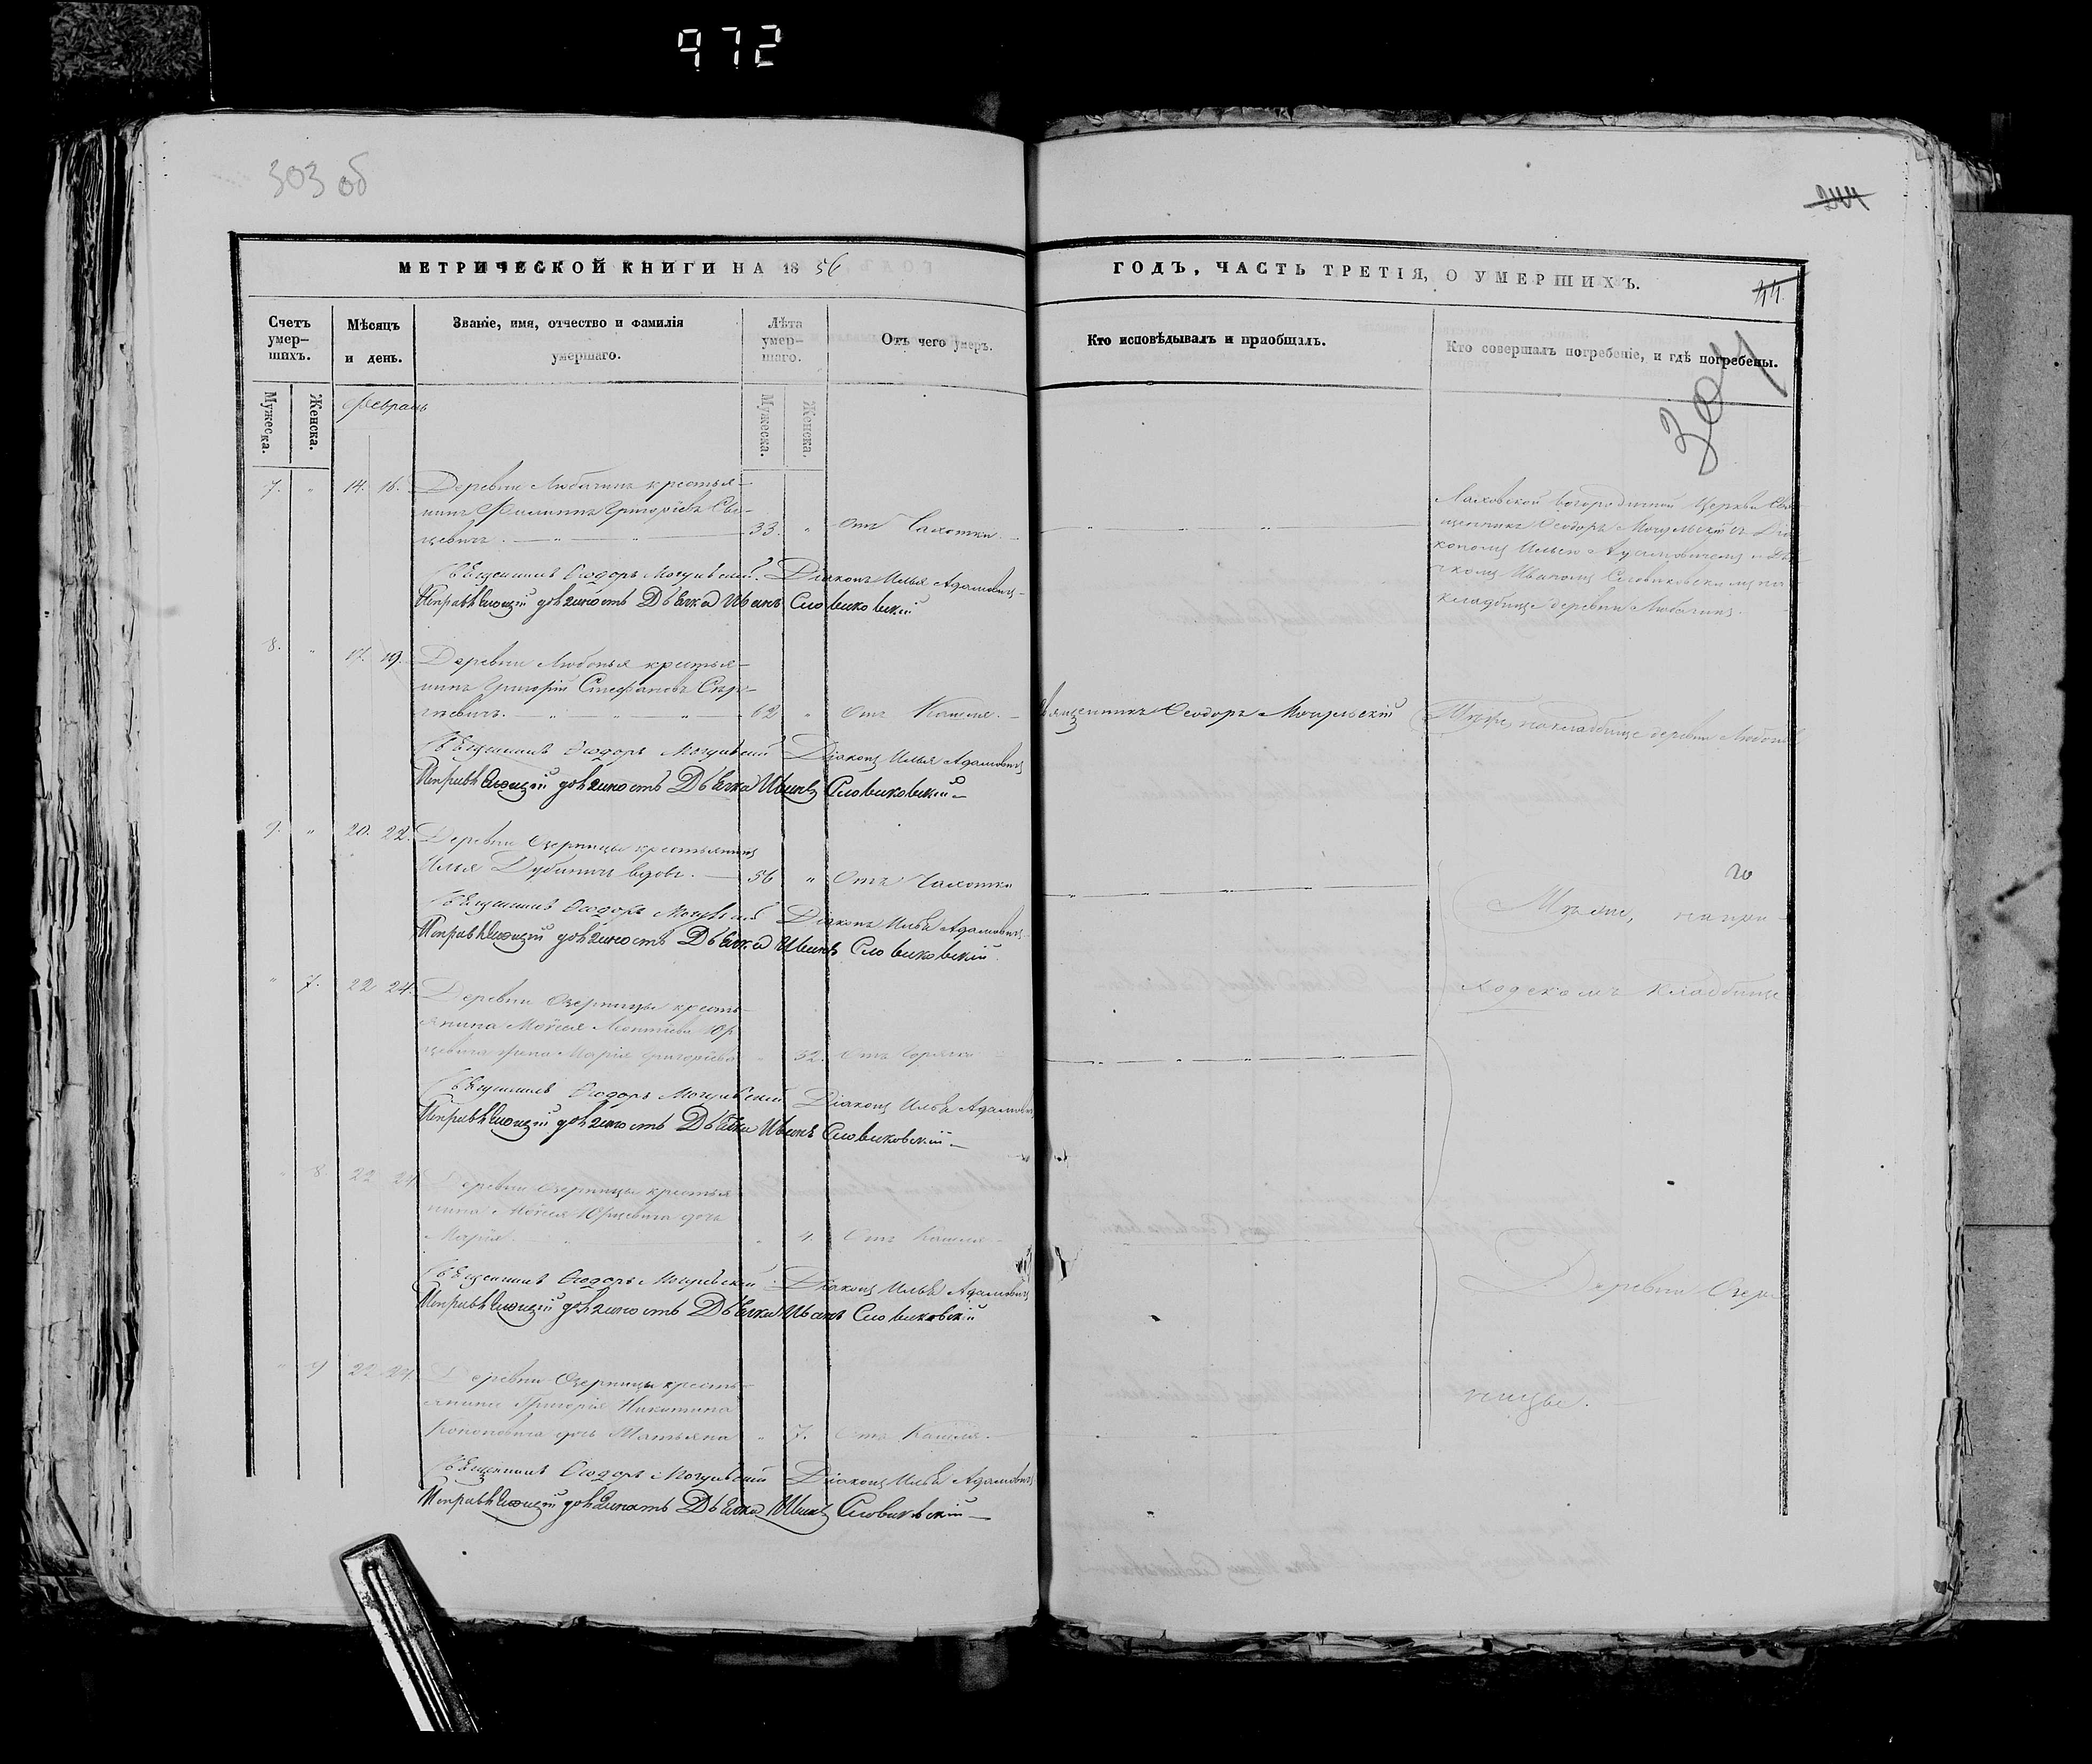 972
303 об
244
МЕТРИЧЕСКОЙ КНИГИ НА 1856
ГОДЪ, ЧАСТЬ ТРЕТІЯ, О УМЕРШИХЪ.
44.
304
Счетъ умер-
шихъ.
Мѣсяцъ
и день.
Званіе, имя, отчество и фамилія
умершаго.
Лѣта
умер-
шаго.
Отъ чего умеръ.
Кто исповѣдывалъ и пріобщалъ.
Кто совершалъ погребеніе, и гдѣ погребены.
Мужеска.
Женска.
Февраль
Мужеска.
Женска.
7. " 14. 16. Деревни Любачинъ крестья-
нинъ Филиппъ Григоріевъ
цевичъ. 33. " Отъ Чахотки.
Лаховской Богородичной Церкви Свя-
щенникъ Ѳеодоръ Могильскій съ Діа-
кономъ Ильею Адамовичемъ и Дья-
чкомъ Иваномъ Словиковскимъ на
кладбище деревни Любачинъ.
Священникъ Ѳеодоръ Могильскій. Діаконъ Илья Адамовичъ
Исправляющій должность Дьячка Иванъ Словиковскій
8. " 17. 19. Деревни Любонья крестья-
нинъ Григорій Стефановъ
62 " Отъ Кашля.
Священникъ Ѳеодоръ Могильскій
на кладбище деревни
Священникъ Ѳеодоръ Могильскій Діаконъ Илья Адамовичъ
Исправляющій должность Дьячка Иванъ Словиковскій
9. " 20. 22. Деревни Озерницы крестьянинъ
Илья Дубичичъ вдовъ. 56 " Отъ Чахотки
на при-
ходскомъ кладбище
Священникъ Ѳеодоръ Могильскій Діаконъ Илья Адамовичъ
Исправляющій должность Дьячка Иванъ Словиковскій
" 7. 22 24. Деревни Озерницы кресть-
янина Моисея Леонтіева Юр
цевича жена Марія Григоріева " 32. Отъ Горячки
Священникъ Ѳеодоръ Могильскій Діаконъ Илья Адамовичъ
Исправляющій должность Дьячка Иванъ Словиковскій
" 8 22 24 Деревни Озерницы крестья
нина Моисея Юрцевича дочь
Марія " 4. Отъ Кашля
Деревни Озер-
Священникъ Ѳеодоръ Могильскій Діаконъ Илья Адамовичъ
Исправляющій должность Дьячка Иванъ Словиковскій
" 9 22 24. Деревни Озерницы кресть-
янина Григорія Никитина
Кононовича дочь Татьяна " 7. Отъ Кашля.
ницы.
Священникъ Ѳеодоръ Могильскій Діаконъ Илья Адамовичъ
Исправляющій должность Дьячка Иванъ Словиковскій